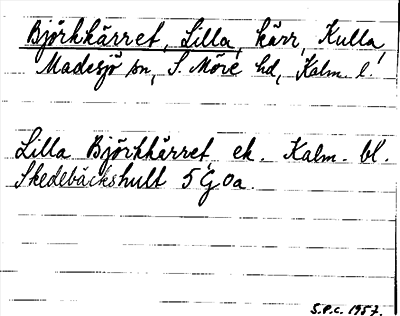 Björkkärret, Lilla, kärr, Kulla,
Madesjö sn, S. Möre hd, Kalm. l.
Lilla Björkkärret ek. Kalm. bl.
Skedebäckshult 5 G 0a.
S.P.C. 1957.